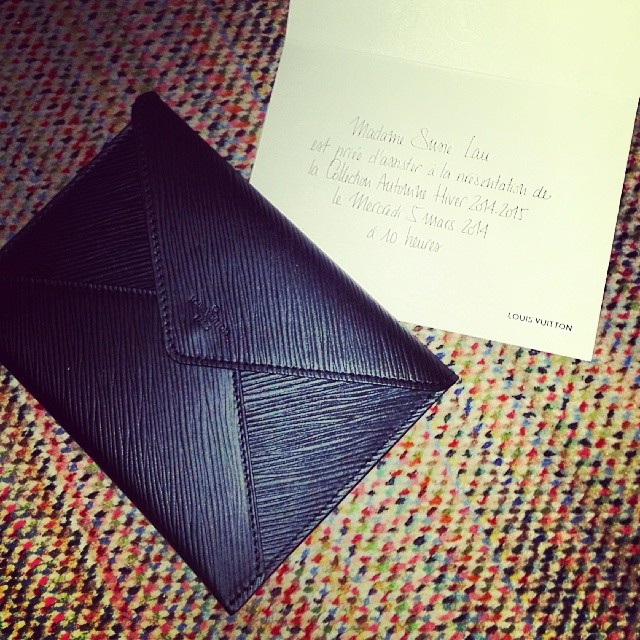 Madame Susie Lau
est priée d'assister à la présentation de
la Collection Automne Hiver 2014-2015
le Mercredi 5 mars 2014
à 10 heures
LOUIS VUITTON